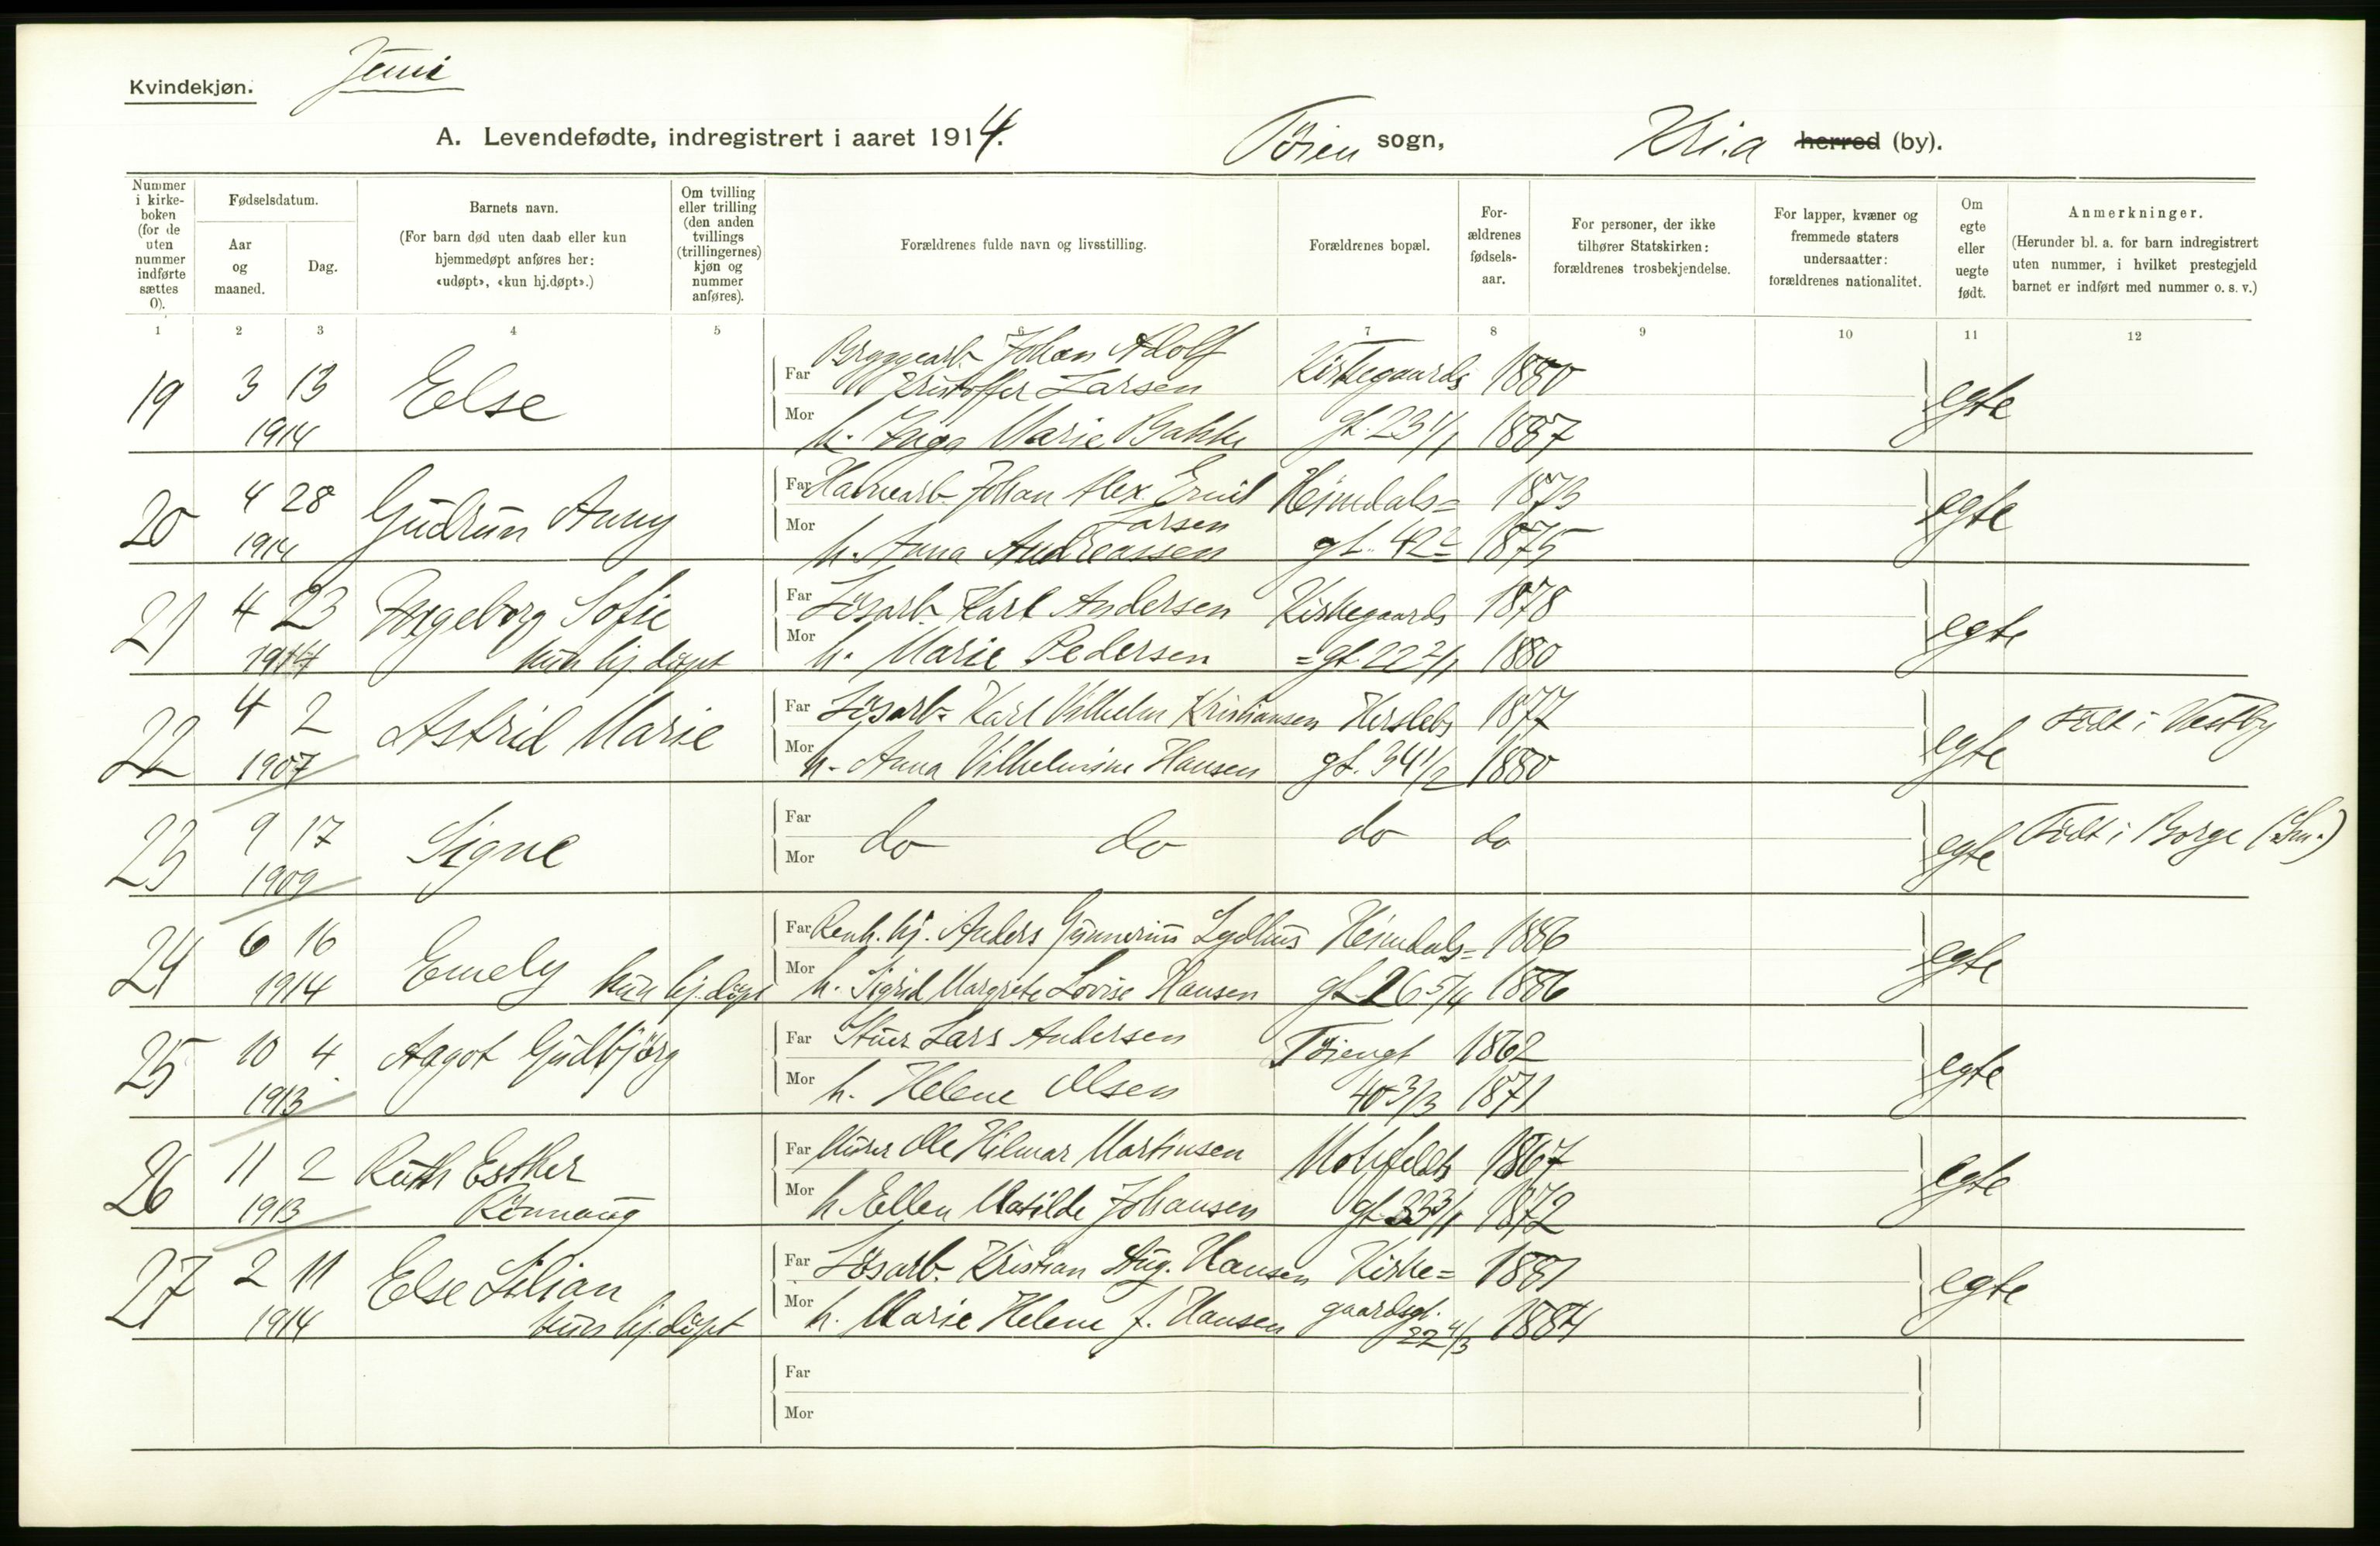 Kvindekjøn. Juni
A. Levendefødte, indregistrert i aaret 1914. Tøien sogn, Kri.a herred (by).
Nummer i kirke-boken (for de uten nummer indførte sættes 0).
Fødselsdatum.
Aar og maaned.
Dag.
Barnets navn.
(For barn død uten daab eller kun hjemmedøpt anføres her: «udøpt», «kun hj.døpt».)
Om tvilling eller trilling (den anden tvillings (trillingernes) kjøn og nummer anføres).
Forældrenes fulde navn og livsstilling.
Forældrenes bopæl.
For-ældrenes fødsels-aar.
For personer, der ikke tilhører Statskirken: forældrenes trosbekjendelse.
For lapper, kvæner og fremmede staters undersaatter: forældrenes nationalitet.
Om egte eller uegte født.
Anmerkninger.
(Herunder bl. a. for barn indregistrert uten nummer, i hvilket prestegjeld barnet er indført med nummer o. s. v.)
1 2 3 4 5 6 7 8 9 10 11 12
19 3 13 1914 Else
Far Bryggearb. Johan Adolf Kristoffer Larsen Kirkegaards 1880
Mor h. Inga Marie Bakke gt. 23 1/1 1887 egte
20 4 28 1914 Gudrun Anny
Far Havnearb. Johan Alex. Emil Larsen Heimdals= 1873
Mor h. Anna Andreassen gt. 42 2 1875 egte
21 4 23 1914 Ingeborg Sofie kun hj. döpt
Far Lösarb. Karl Andersen Kirkegaards 1878
Mor h. Marie Pedersen =gt. 22 2/1 1880 egte
22 4 2 1907 Astrid Marie
Far Lösarb. Karl Vilhelm Kristiansen Herslebs 1877
Mor h. Anna Vilhelmine Hansen gt. 34 1/2 1880 egte Födt i Vestby
23 9 17 1909 Signe
Far Mor do do do do egte Födt i Borge (Sm.)
24 6 16 1914 Emely kun hj. döpt
Far Renh. bj. Anders Gunnerius Lydhus Heimdals= 1886
Mor h. Sigrid Margrete Lovise Hansen gt 26 5/4 1886 egte
25 10 4 1913 Aagot Gudbjörg
Far Stuer Lars Andersen Töiengt 1862
Mor h. Helene Olsen 40 3/3 1871 egte
26 11 2 1913 Ruth Esther Rönnaug
Far Murer Ole Hilmar Martinsen Motzfeldts 1867
Mor h. Ellen Matilde Johansen gt 33 3/1 1872 egte
27 2 11 1914 Else Lilian kun hj. döpt
Far Lösarb. Kristian Aug. Hansen Kirke= 1881
Mor h. Marie Helene f. Hansen gaardsgt. 22 4/3 1884 egte
Far
Mor